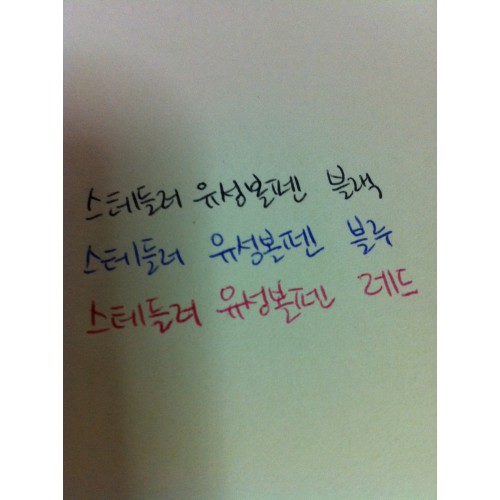 스테들러 유성볼펜 블랙
스테들러 유성볼펜 블루
스테들러 유성볼펜 레드